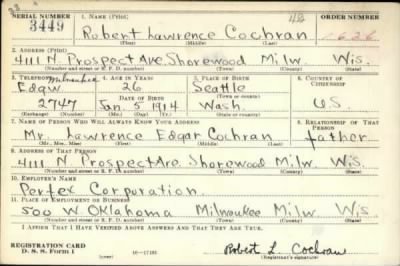 SERIAL NUMBER 1. NAME (Print) ORDER NUMBER
3449 Robert Lawrence Cochran
(First) (Middle) (Last)
2. ADDRESS (Print)
4111 N. Prospect Ave. Shorewood Milw. Wis.
(Number and street or R. F. D. number) (Town) (County) (State)
3. TELEPHONE 4. AGE IN YEARS 5. PLACE OF BIRTH 6. COUNTRY OF CITIZENSHIP
Milwaukee
Edgw. 26 Seattle
(Exchange) DATE OF BIRTH (Town or county)
2747 Jan. 5 1914 Wash. U.S.
(Number) (Mo.) (Day) (Yr.) (State or country)
7. NAME OF PERSON WHO WILL ALWAYS KNOW YOUR ADDRESS 8. RELATIONSHIP OF THAT PERSON
Mr. Lawrence Edgar Cochran father
(Mr., Mrs., Miss) (First) (Middle) (Last)
9. ADDRESS OF THAT PERSON
4111 N. Prospect Ave. Shorewood Milw. Wis.
(Number and street or R. F. D. number) (Town) (County) (State)
10. EMPLOYER'S NAME
Perfex Corporation
11. PLACE OF EMPLOYMENT OR BUSINESS
500 W Oklahoma Milwaukee Milw. Wis.
(Number and street or R. F. D. number) (Town) (County) (State)
I AFFIRM THAT I HAVE VERIFIED ABOVE ANSWERS AND THAT THEY ARE TRUE.
REGISTRATION CARD
D. S. S. Form 1 16-17105 Robert L. Cochran
(Registrant's signature)